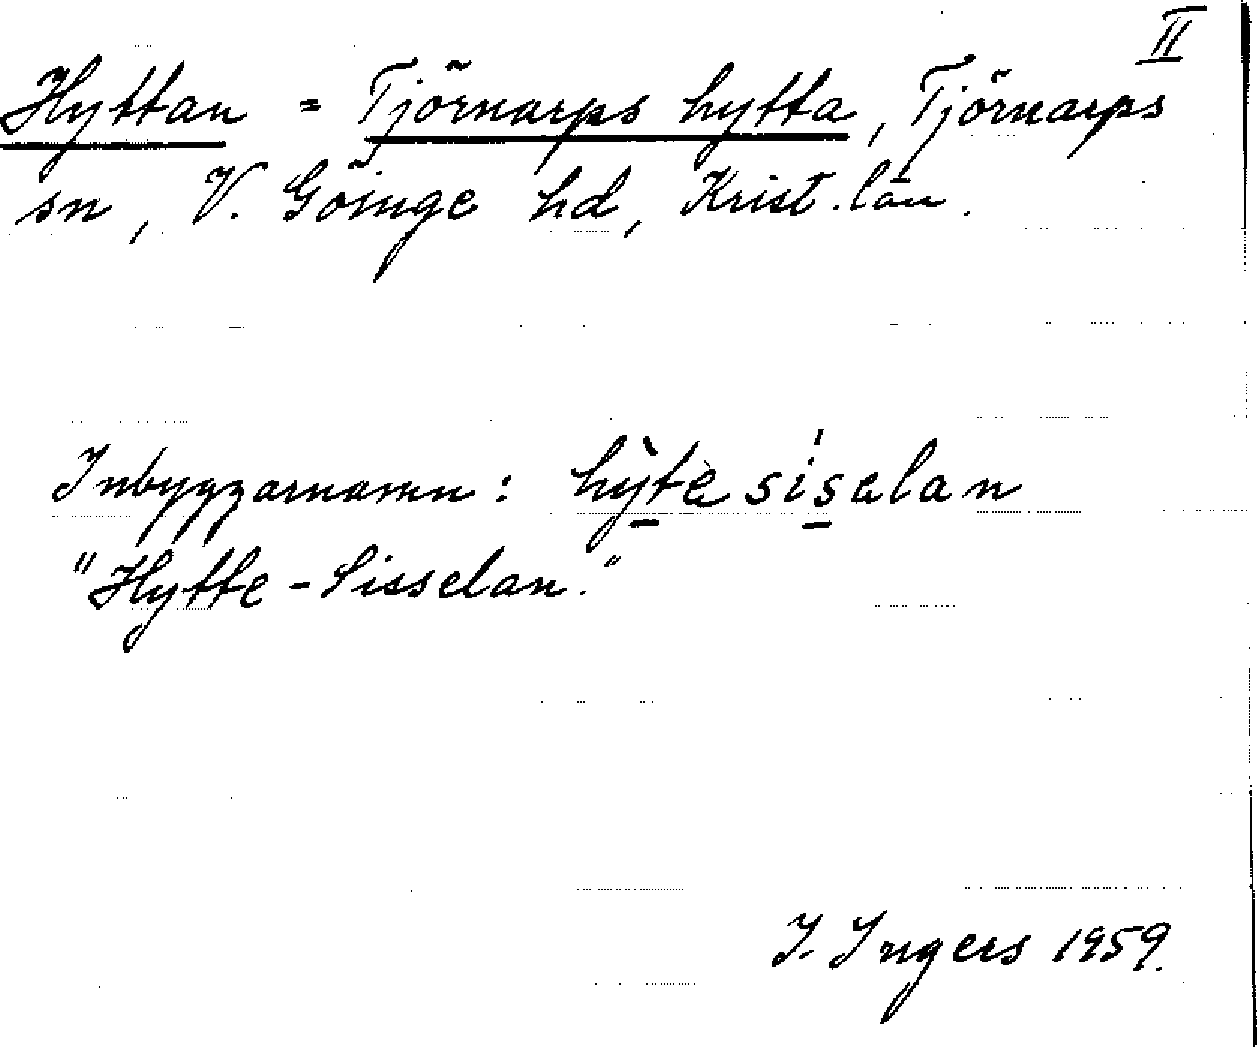 II
Hyttan = Tjörnarps hytta, Tjörnarps
sn, V. Göinge hd, Krist. län.
Inbyggarnamn: hỳtè síselan
"Hytte-Sisselan."
I. Ingers 1959.